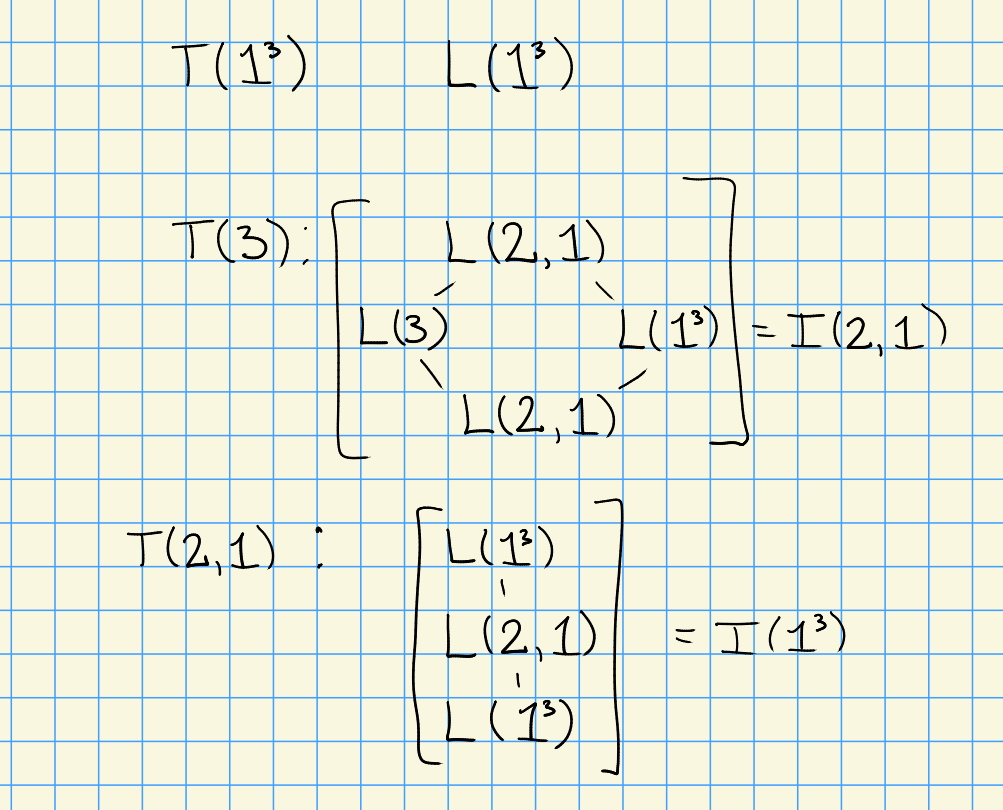 T(1³) L(1³)
T(3): L(2,1)
L(3) L(1³) = I(2,1)
L(2,1)
T(2,1) : L(1³)
L(2,1) = I(1³)
L(1³)